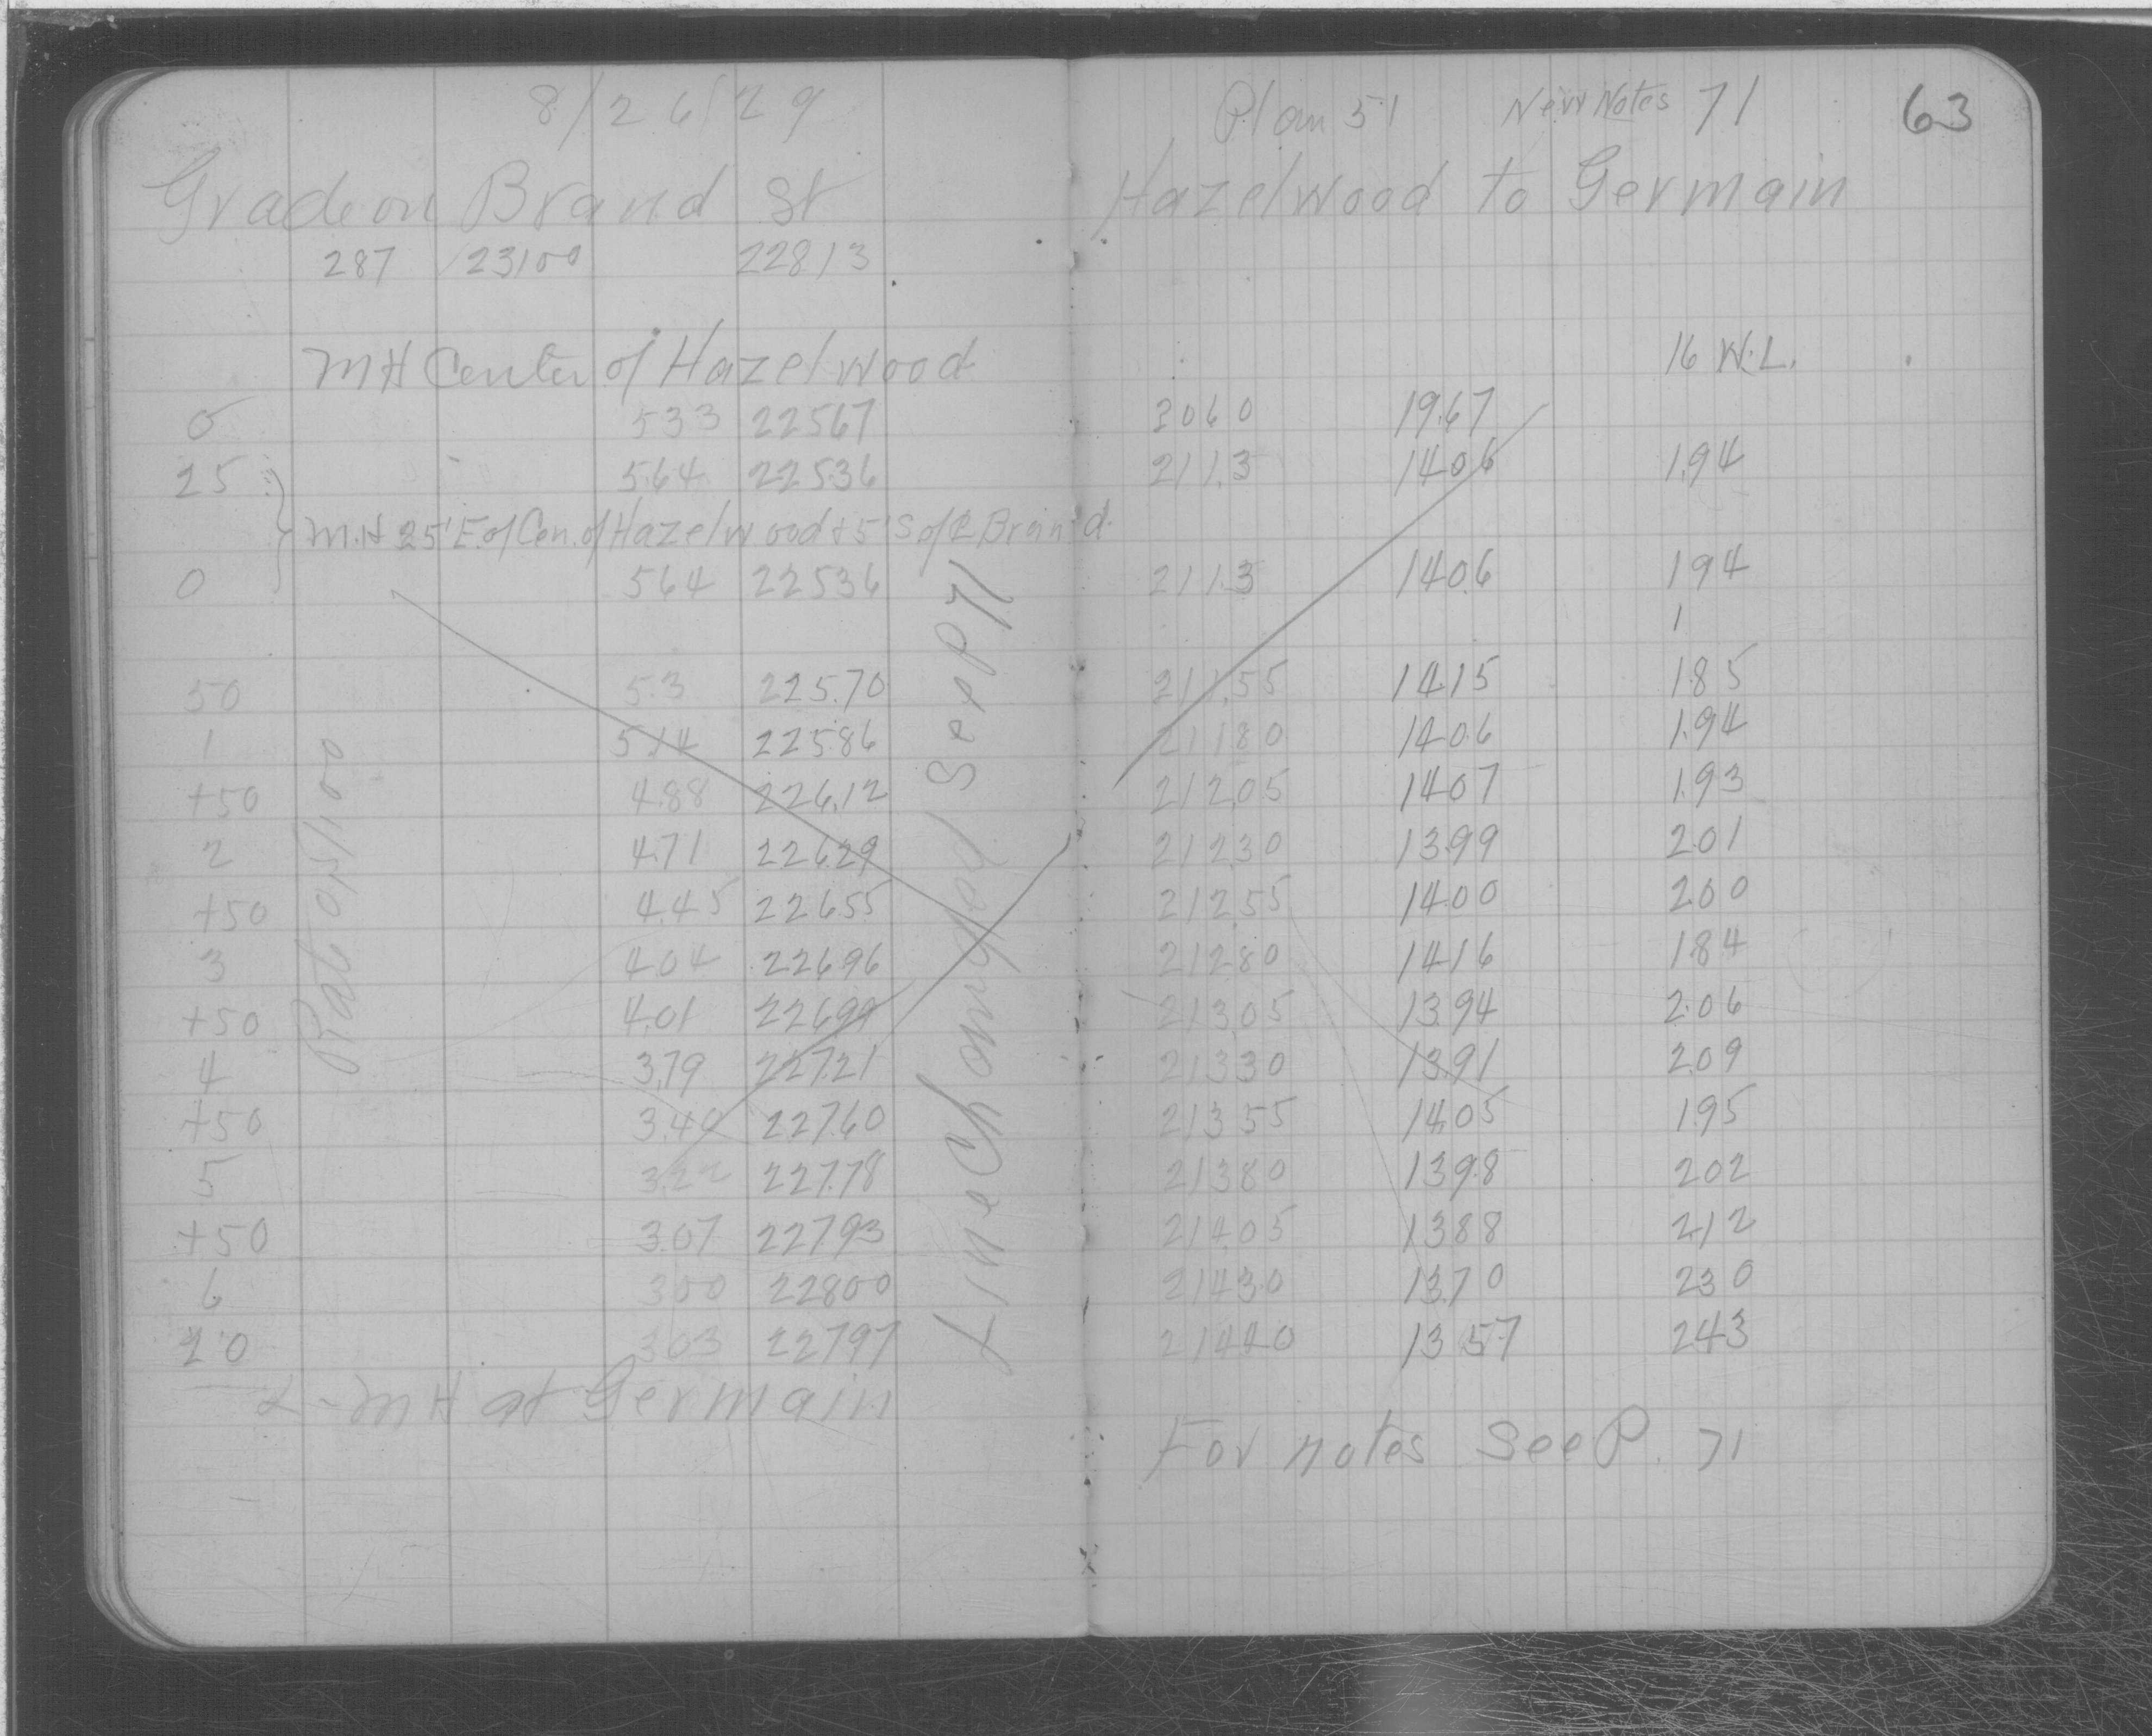 8/26/29 Plan 51 New Notes 71 63
Grade on Brand St Hazelwood to Germain
287 23100 22813
MH Center of Hazelwood 16 W.L.
0 533 22567 2060 19.67
25 5.64 22536 211.3 1406 1.94
M.H 25' E. of Cen. of Hazelwood + 5' S of ℄ Brand
0 564 22536 211.3 1406 194
1
50 5.3 225.70 211.55 1415 185
1 5.14 22586 21180 1406 1.94
+50 4.88 226.12 21205 1407 1.93
2 4.71 22629 21230 1399 201
+50 4.45 22655 21255 1400 200
3 404 22696 21280 1416 184
+50 4.01 22699 21305 1394 2.06
4 3.79 22721 21330 1391 209
+50 3.40 22760 21355 1405 195
5 3.22 227.78 21380 1398 202
+50 3.07 22793 21405 1388 212
6 300 22800 21430 1370 230
20 303 22797 21440 1357 243
MH at Germain
For notes See P. 71
Rate 0.5/100
Line Changed See P 71